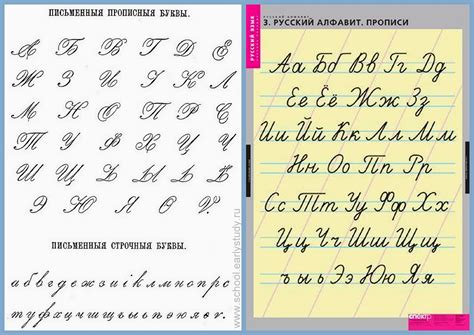 ПИСЬМЕННЫЯ ПРОПИСНЫЯ БУКВЫ.
А Б В Г Д Е
Ж З И І К Л
М Н О П Р С
Т У Ф Х Ц Ч
Ш Щ Ъ Ы Ь Ѣ
Э Ю Я Ѳ Ѵ.
ПИСЬМЕННЫЯ СТРОЧНЫЯ БУКВЫ.
а б в г д е ж з и і к л м н о п р с
т у ф х ц ч ш щ ъ ы ь ѣ э ю я ѳ ѵ.
www.school.earlystudy.ru
РУССКИЙ ЯЗЫК
3. РУССКИЙ АЛФАВИТ. ПРОПИСИ
Аа Бб Вв Гг Дд
Ее Ёё Жж Зз
Ии Йй Кк Лл Мм
Нн Оо Пп Рр
Сс Тт Уу Фф Хх
Цц Чч Шш Щщ
ъ ы ь Ээ Юю Яя